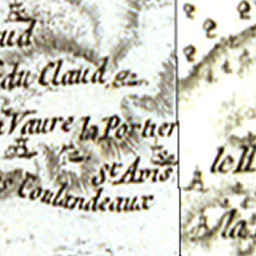 aud
du Claud
Vaure la Portier
St Avis
Coulandeaux
la